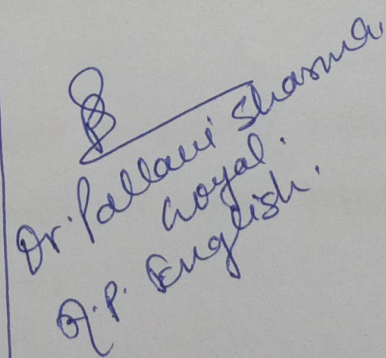 Dr. Pallavi Sharma
Goyal.
A.P. English.